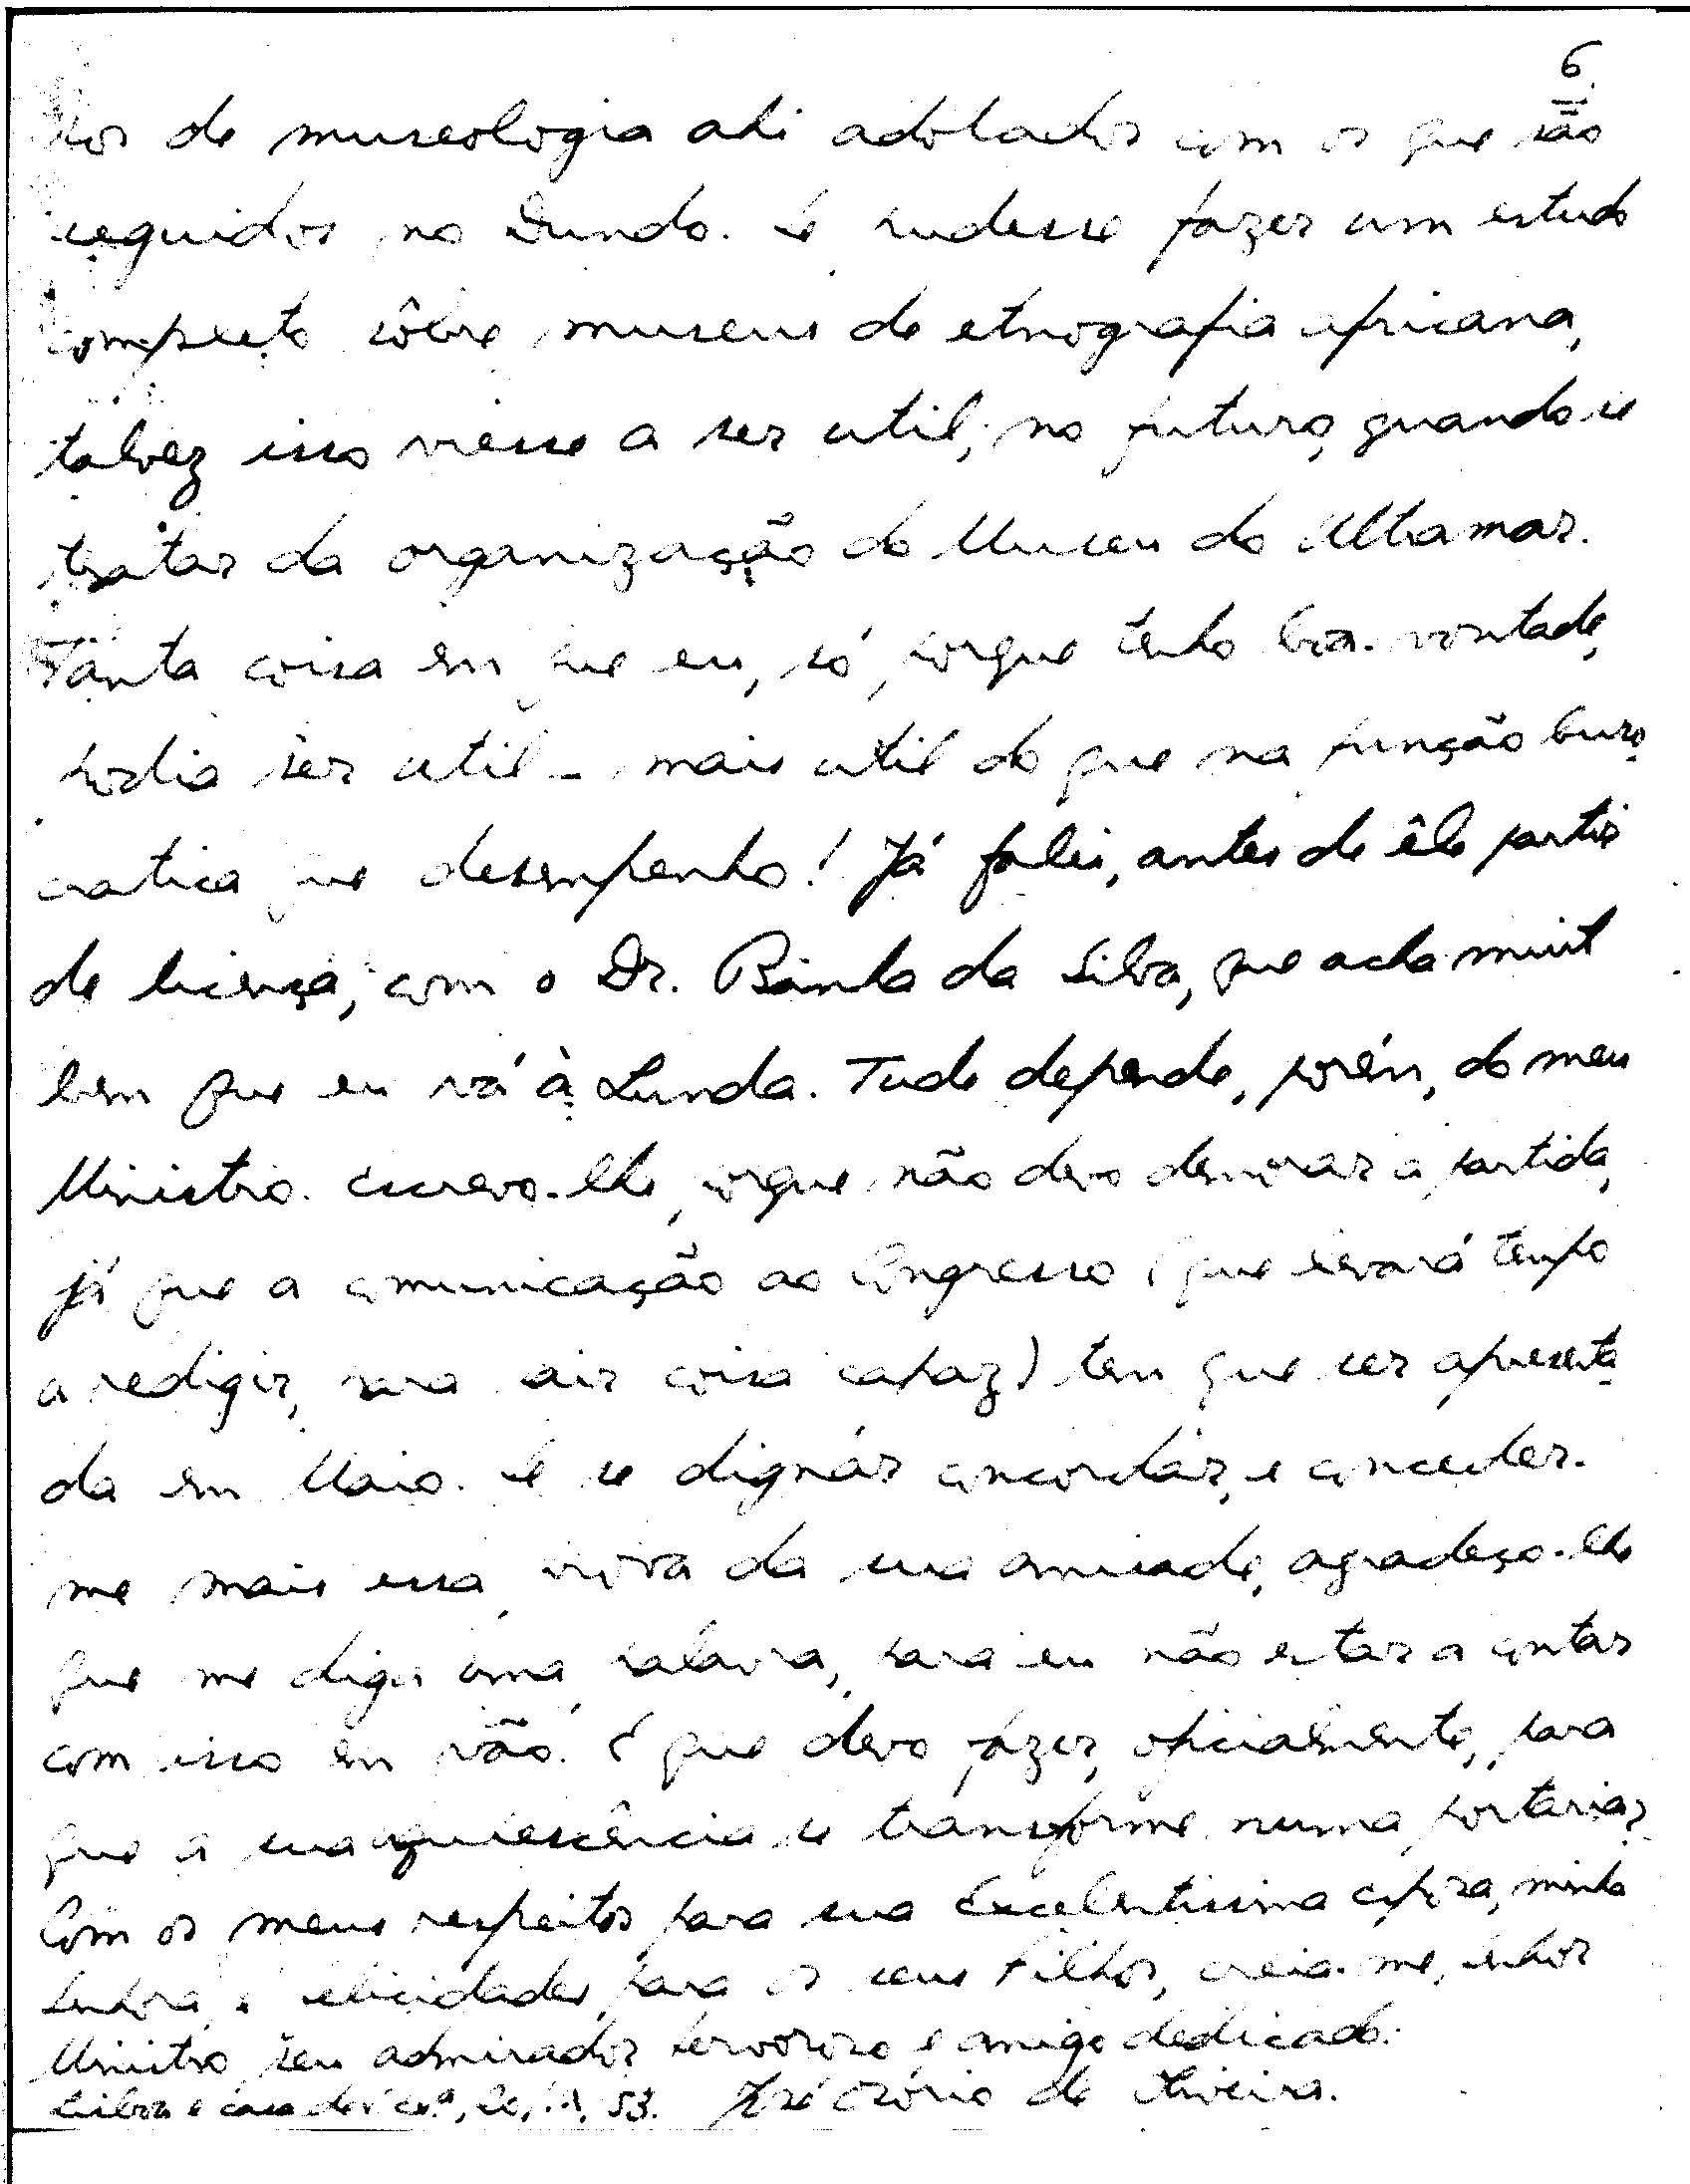 6
tos de museologia ali adotados com os que são
seguidos no Dundo. Se pudesse fazer um estudo
completo sôbre museus de etnografia africana,
talvez isso viesse a ser util, no futuro, quando se
tratar da organização do Museu do Ultramar.
Tanta coisa em que eu, só porque tenho boa-vontade,
podia ser util - mais util do que na função buro
cratica que desempenho! Já falei, antes de êle partir
de licença, com o Dr. Banha da Silva, que acha muit
bem que eu vá à Lunda. Tudo depende, porém, do meu
Ministro. Escrevo-lhe, porque não devo demorar a partida,
já que a comunicação ao Congresso (que levará tempo
a redigir, para sair coisa capaz) tem que ser apresenta
da em Maio. Se se dignár concordár, e conceder-
me mais essa prova da sua amisade, agradeço-lhe
que me diga uma palavra, para eu não estar a contar
com isso em vão. E que devo fazer, oficialmente, para
que a sua aquiescência se transforme numa portaria?
Com os meus respeitos para sua Excelentissima esposa, minha
Senhora, e felicidades para os seus Filhos, creia-me, Senhor
Ministro, seu admirador fervoroso e amigo dedicado.
Lisboa 53. José Osório de Oliveira.